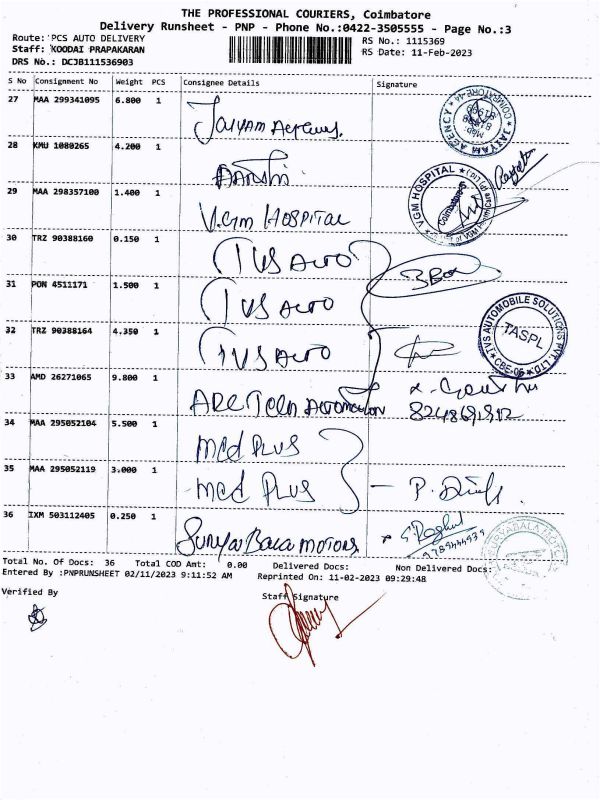 THE PROFESSIONAL COURIERS, Coimbatore
Delivery Runsheet - PNP - Phone No.:0422-3505555 - Page No.:3
Route: PCS AUTO DELIVERY
RS No.: 1115369
Staff: KOODAI PRAPAKARAN
RS Date: 11-Feb-2023
DRS No.: DCJB111536903
S No Consignment No Weight PCS Consignee Details Signature
27 MAA 299341095 6.800 1 Jaiyam Agency JAIYAM AGENCY COIMBATORE-44
28 KMU 1080265 4.200 1
29 MAA 298357100 1.400 1 V.G.M HOSPITAL VGM HOSPITAL Coimbatore
30 TRZ 90388160 0.150 1 TVS AUTO
31 PON 4511171 1.500 1 TVS AUTO
32 TRZ 90388164 4.350 1 TVS AUTO TVS AUTOMOBILE SOLUTIONS PVT. LTD. TASPL CBE-06
33 AMD 26271065 9.800 1
34 MAA 295052104 5.500 1 Med PLUS
35 MAA 295052119 3.000 1 Med PLUS P.
36 IXM 503112405 0.250 1 Surya Bala MOTORS S. Raghul SURYABALA MOTORS
Total No. Of Docs: 36 Total COD Amt: 0.00 Delivered Docs: Non Delivered Docs:
Entered By :PNPRUNSHEET 02/11/2023 9:11:52 AM Reprinted On: 11-02-2023 09:29:48
Verified By Staff Signature